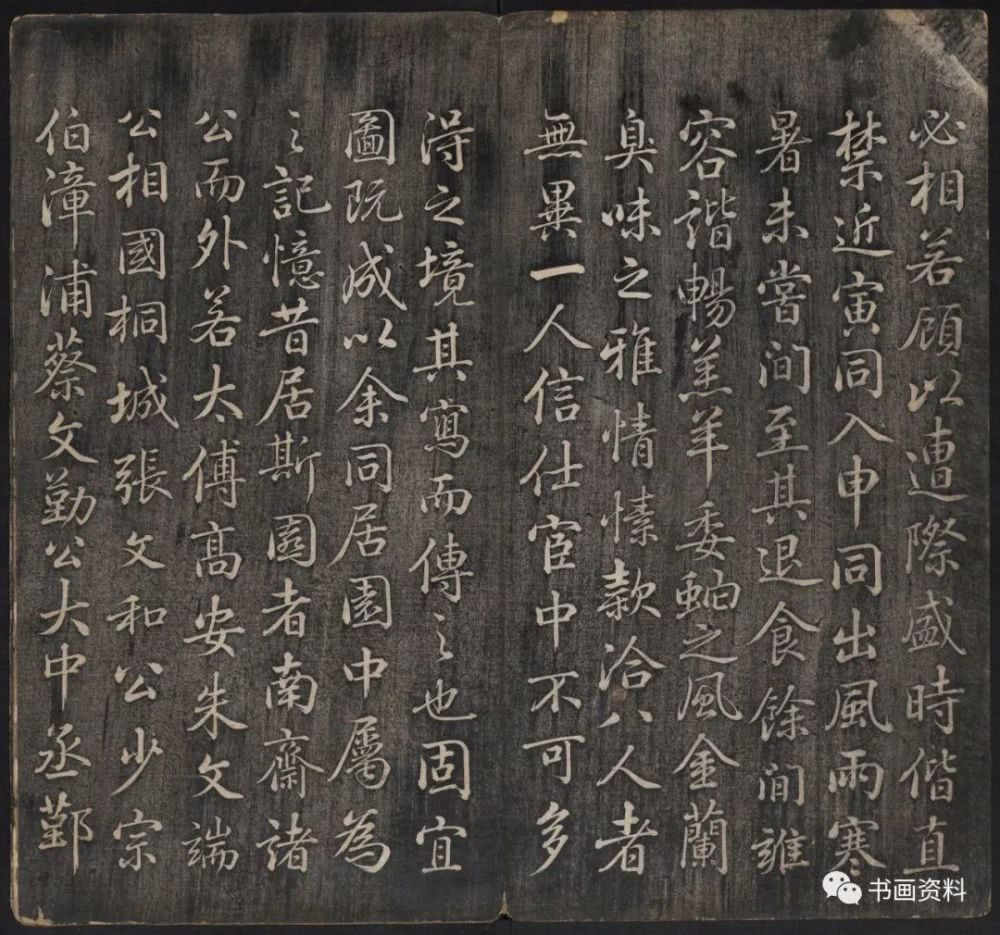 必相若顧以遭際盛時偕直
禁近寅同入申同出風雨寒
暑未嘗間至其退食餘間雍
容諧暢羔羊委蛇之風金蘭
臭味之雅情愫款洽八人者
無異一人信仕宦中不可多
得之境其寫而傳之也固宜
圖既成以余同居園中屬為
之記憶昔居斯園者南齋諸
公而外若太傅高安朱文端
公相國桐城張文和公少宗
伯漳浦蔡文勤公大中丞鄞
书画资料